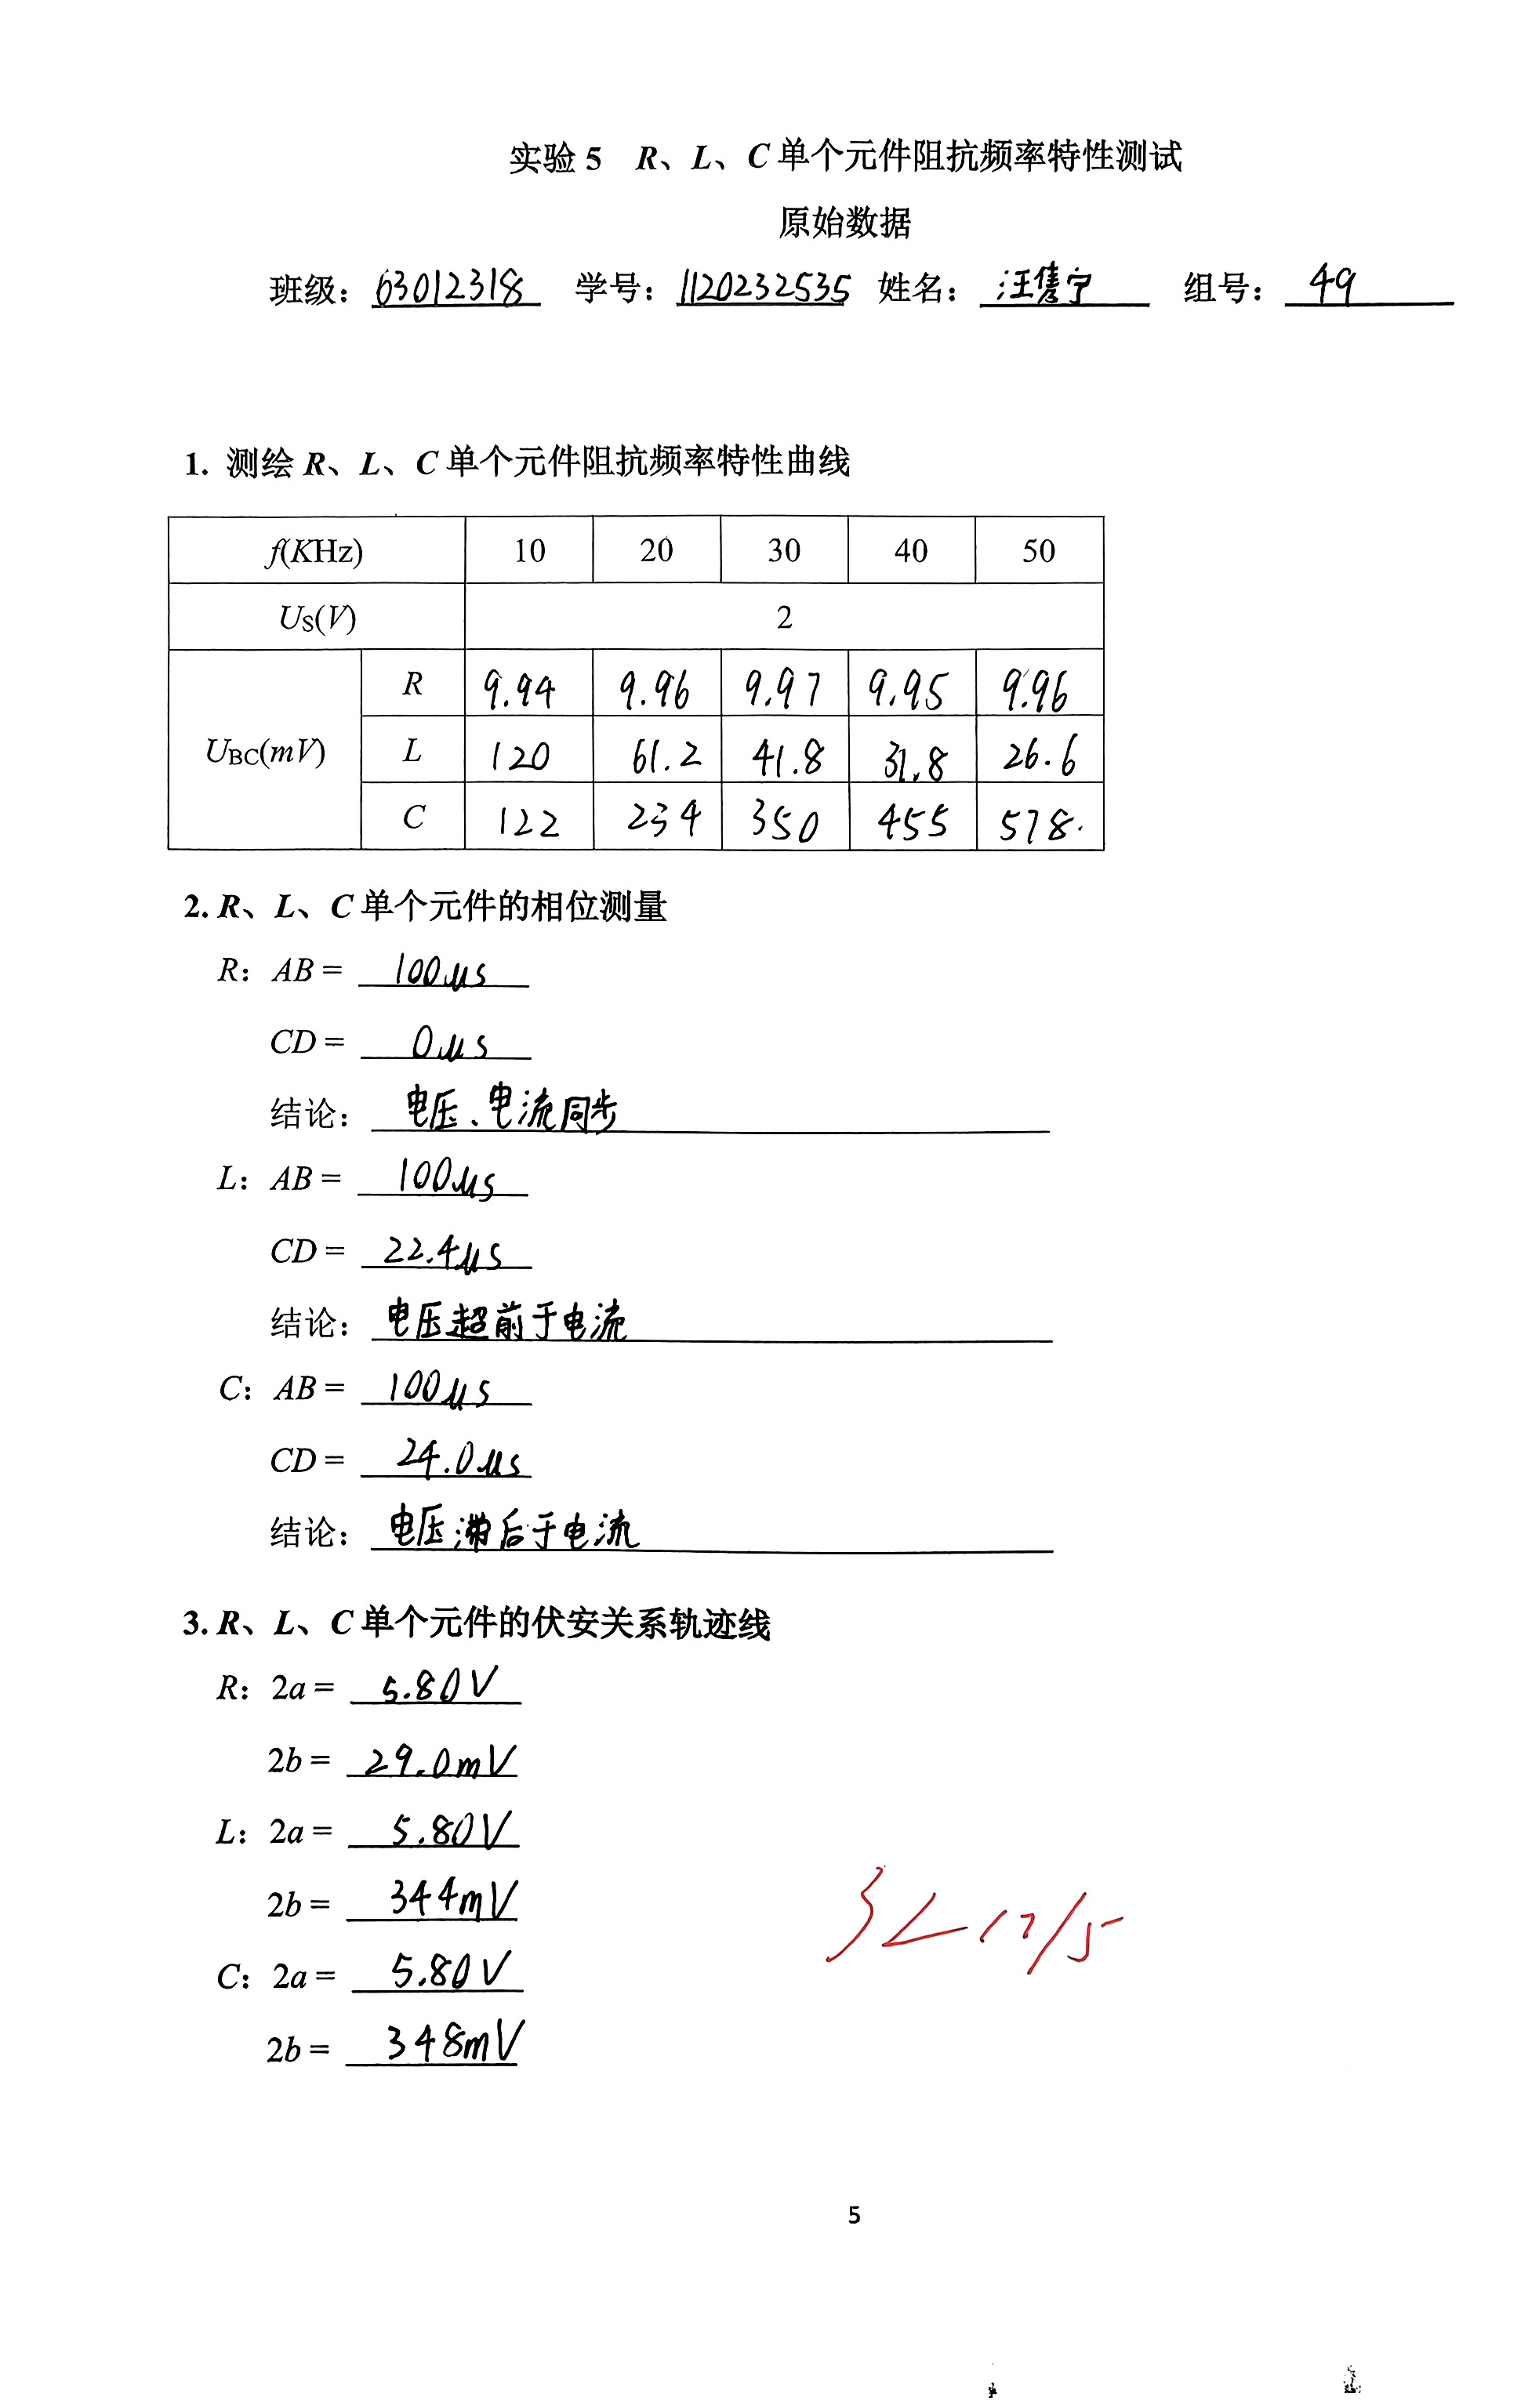 实验 5 R、L、C 单个元件阻抗频率特性测试
原始数据
班级：63012318 学号：1120232535 姓名：汪隽宁 组号：49
1. 测绘 R、L、C 单个元件阻抗频率特性曲线
f(KHz) 10 20 30 40 50
US(V) 2
UBC(mV) R 9.94 9.96 9.97 9.95 9.96
L 120 61.2 41.8 31.8 26.6
C 122 234 350 455 578.
2. R、L、C 单个元件的相位测量
R：AB = 100μs
CD = 0μs
结论：电压、电流同步
L：AB = 100μs
CD = 22.4μs
结论：电压超前于电流
C：AB = 100μs
CD = 24.0μs
结论：电压滞后于电流
3. R、L、C 单个元件的伏安关系轨迹线
R：2a = 5.80V
2b = 29.0mV
L：2a = 5.80V
2b = 344mV
C：2a = 5.80V
2b = 348mV
5